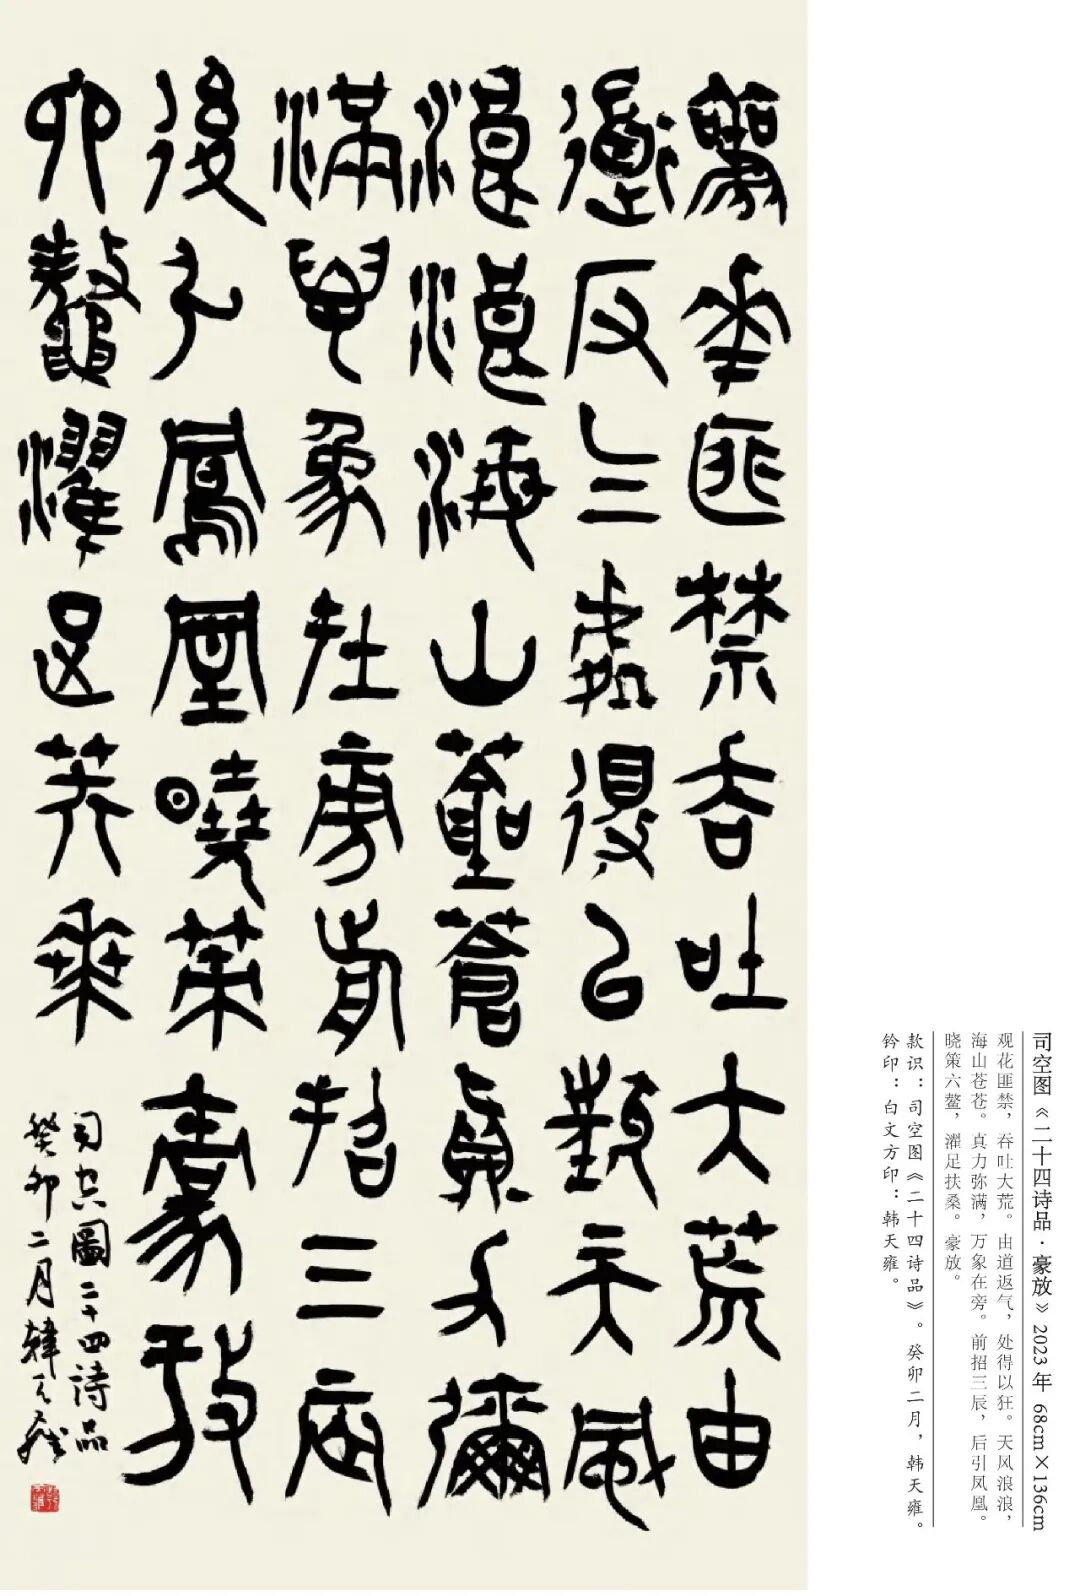 觀花匪禁吞吐大荒由
道反气處得以狂天風
浪浪海山蒼蒼真力彌
滿萬象在旁前招三辰
後引鳳凰曉策
六鰲濯足扶桑
豪放
司空圖二十四詩品
癸卯二月韓天雍
司空图《二十四诗品·豪放》2023年 68cm×136cm
观花匪禁，吞吐大荒。由道返气，处得以狂。天风浪浪，
海山苍苍。真力弥满，万象在旁。前招三辰，后引凤凰。
晓策六鳌，濯足扶桑。豪放。
款识：司空图《二十四诗品》。癸卯二月，韩天雍。
钤印：白文方印：韩天雍。